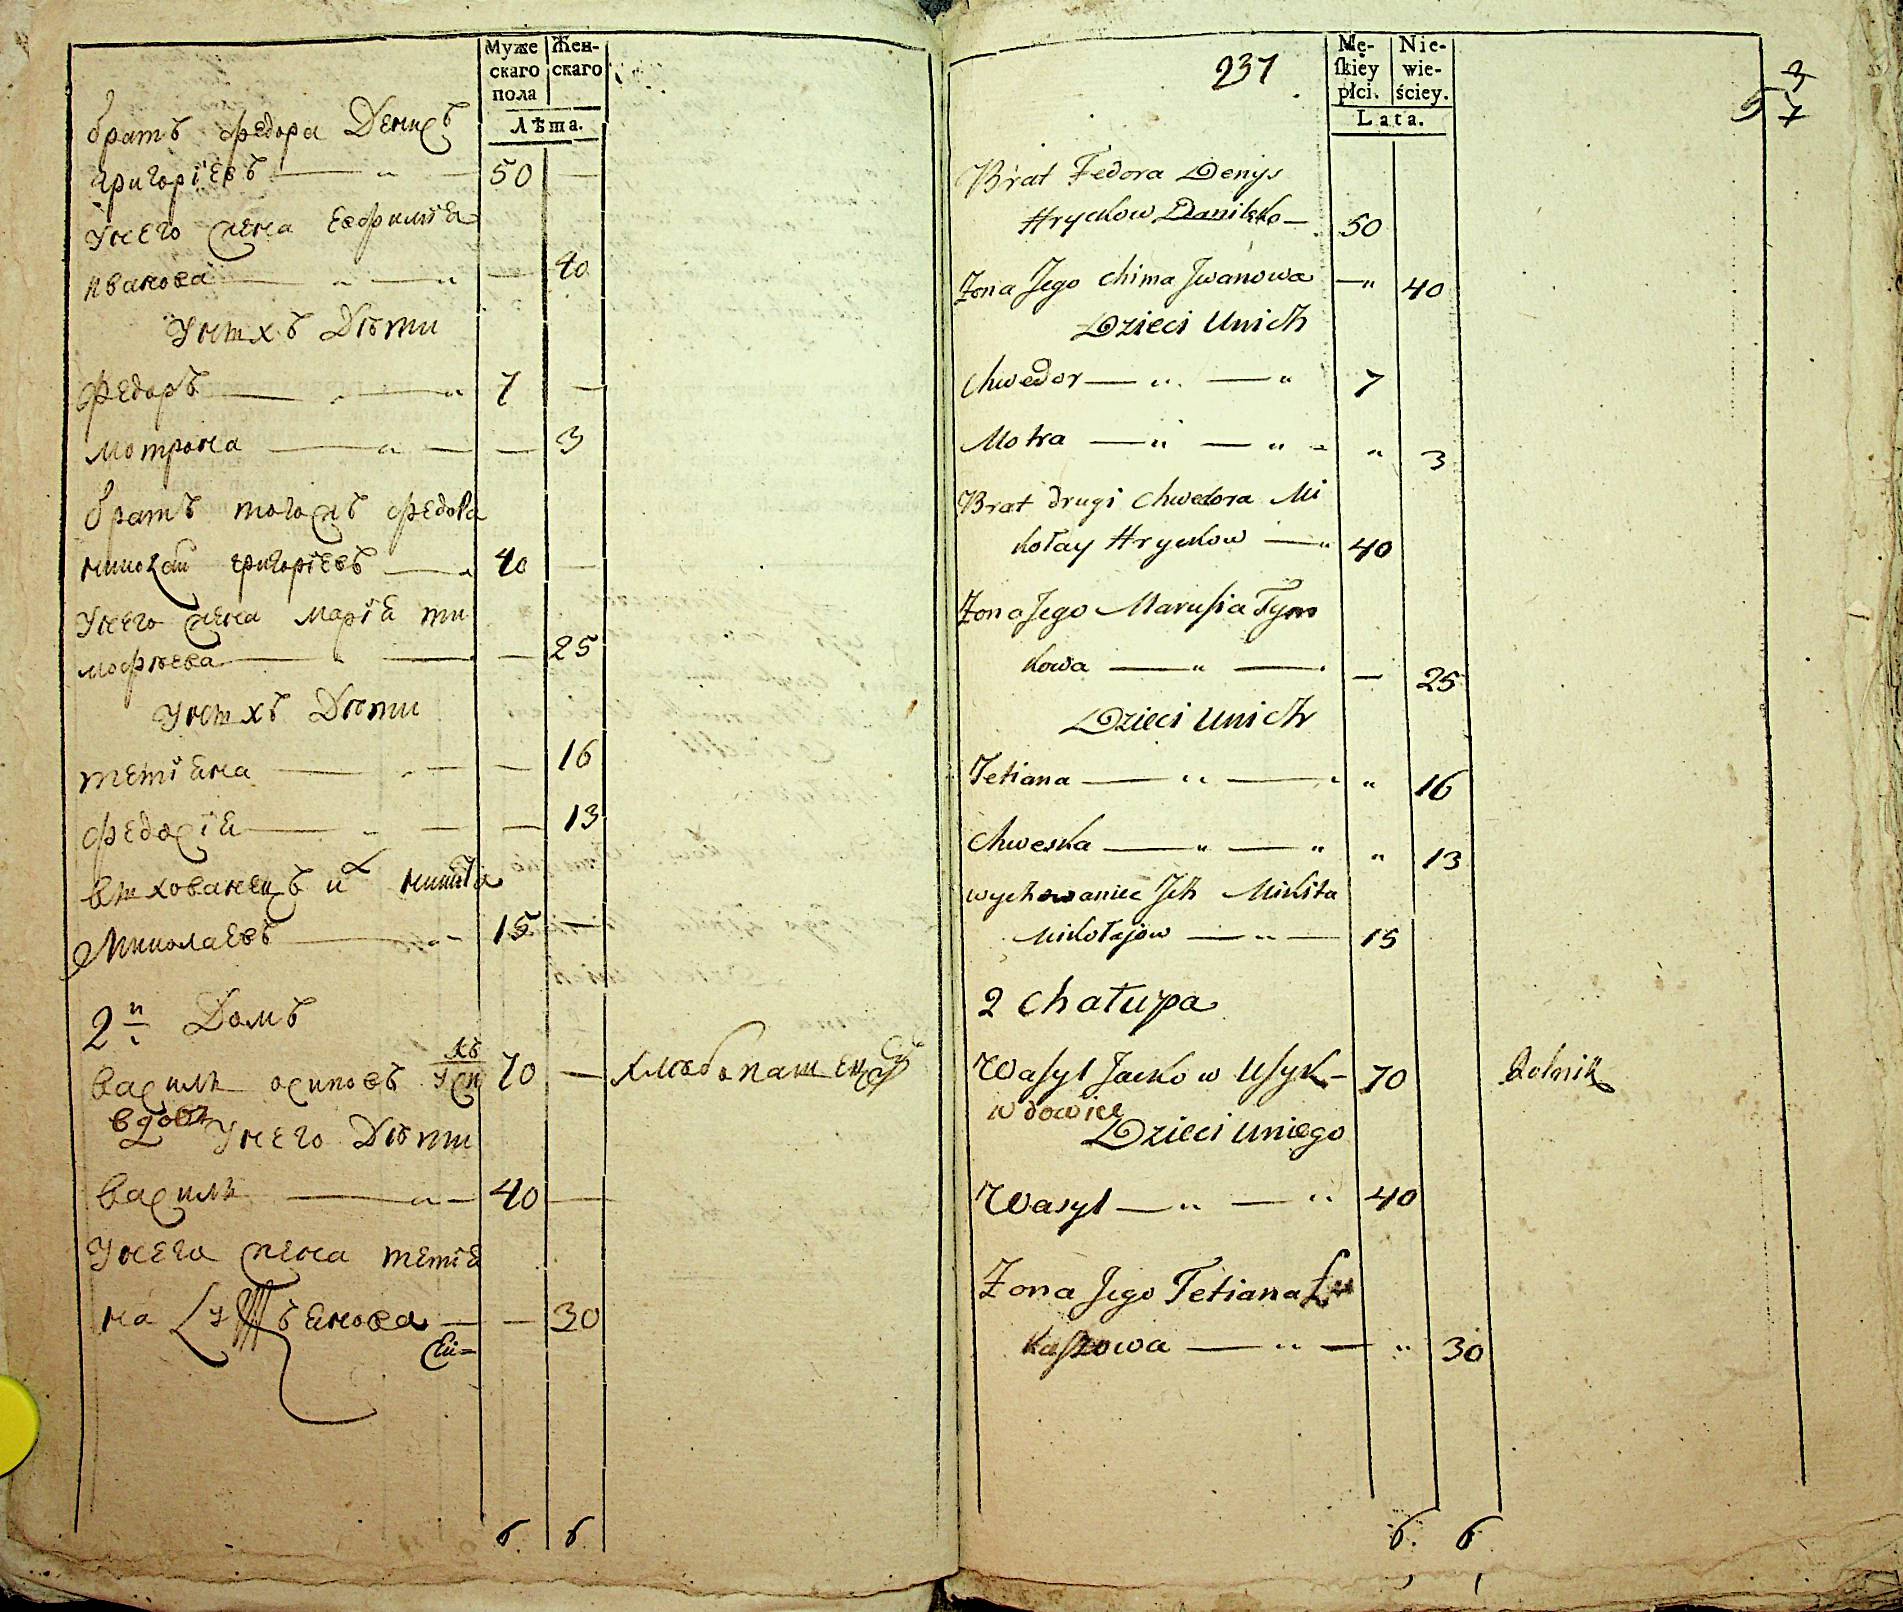 Муже
скаго
пола
Жен-
скаго
Лѣта.
братъ федора Денисъ
григоріевъ — „ — 50 —
унего жена Евфимія
иванова — „ — „ — 40
Унихъ Дѣти
Федоръ — „ — „ 7 —
мотрона — „ — — 3
братъ тогожъ федора
николай григоріевъ — „ 40 —
Унего жена марія ти
мофѣева — „ — — 25
Унихъ Дѣти
тетіана — „ — — 16
федосія — „ — — 13
вихованецъ ихъ никита
Николаевъ — „ — 15 —
2й Домъ
василь осиповъ Усикъ 70 — хлѣбопашецъ
вдовъ Унего Дѣти
василь — „ — 40 —
Унего жена тетіа
на — — 30
6. 6.
237
Mę-
ſkiey
płci.
Nie-
wie-
ściey.
Lata.
3
5 7
Brat Fedora Denys
Hryckow Danilko — 50
Zona Jego Chima Jwanowa — „ 40
Dzieci Unich
Chwedor — „ — „ 7
Motra — „ — „ - „ 3
Brat drugi Chwedora Mi
kołay Hryckow — „ 40
Zona Jego Maruſia Tym
kowa — „ — — 25
Dzieci Unich
Tetiana — „ — „ „ 16
Chweska — „ — „ „ 13
wychowaniec Jch Mikita
Mikołajow — „ — 15
2 Chałupa
Waſyl Jackow Uſyk - 70 Rolnik
wdowiec
Dzieci Uniego
Wasyl — „ — „ 40
Zona Jego Tetiana Łu
kaſzowa — „ — „ 30
6. 6